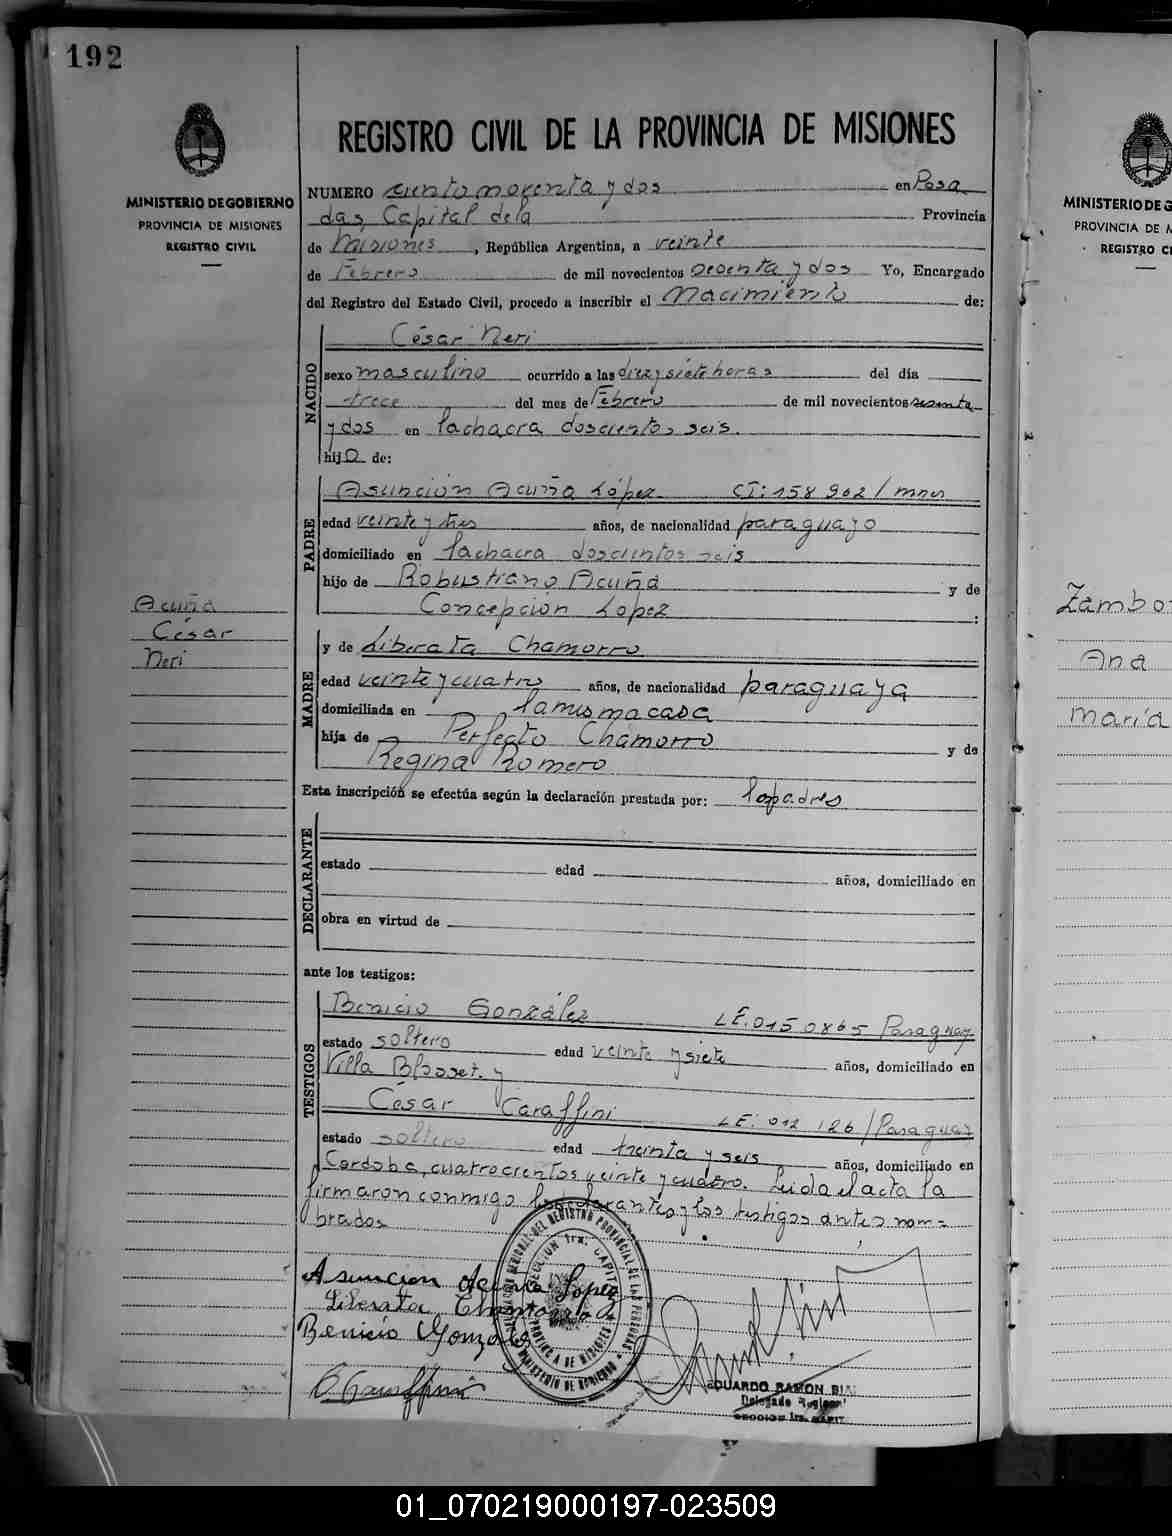 192
MINISTERIO DE GOBIERNO
PROVINCIA DE MISIONES
REGISTRO CIVIL
Acuña
César
Neri
REGISTRO CIVIL DE LA PROVINCIA DE MISIONES
NUMERO ciento noventa y dos en Posa
das, Capital de la Provincia
de Misiones, República Argentina, a veinte
de Febrero de mil novecientos sesenta y dos Yo, Encargado
del Registro del Estado Civil, procedo a inscribir el Nacimiento de:
NACIDO
César Neri
sexo masculino ocurrido a las diez y siete horas del día
trece del mes de Febrero de mil novecientos sesenta
y dos en la chacra doscientos seis.
hijo de:
PADRE
Asunción Acuña López. CI: 158902/mnes
edad veinte y tres años, de nacionalidad paraguayo
domiciliado en la chacra doscientos seis
hijo de Robustiano Acuña y de
Concepción López :
MADRE
y de Liberata Chamorro
edad veinte y cuatro años, de nacionalidad paraguaya
domiciliada en la misma casa
hija de Perfecto Chamorro y de
Regina Romero
Esta inscripción se efectúa según la declaración prestada por: los padres
DECLARANTE
estado edad años, domiciliado en
obra en virtud de
ante los testigos:
TESTIGOS
Benicio González LE. 0150865 Paraguay
estado soltero edad veinte y siete años, domiciliado en
Villa Blosset. y
César Caraffini LE: 012126/Paraguay
estado soltero edad treinta y seis años, domiciliado en
Cordoba, cuatrocientos veinte y cuatro. Leida el acta la
firmaron conmigo los declarantes y los testigos antes nom=
brados
Asuncion Acuña Lopez
Liberata Chamorro
Benicio Gonzalez
C Caraffini
EDUARDO RAMON
Delegado Regional
SECCION 1ra. CAPIT
MINISTERIO DE G
PROVINCIA DE M
REGISTRO CI
Zambo
Ana
María
01_070219000197-023509